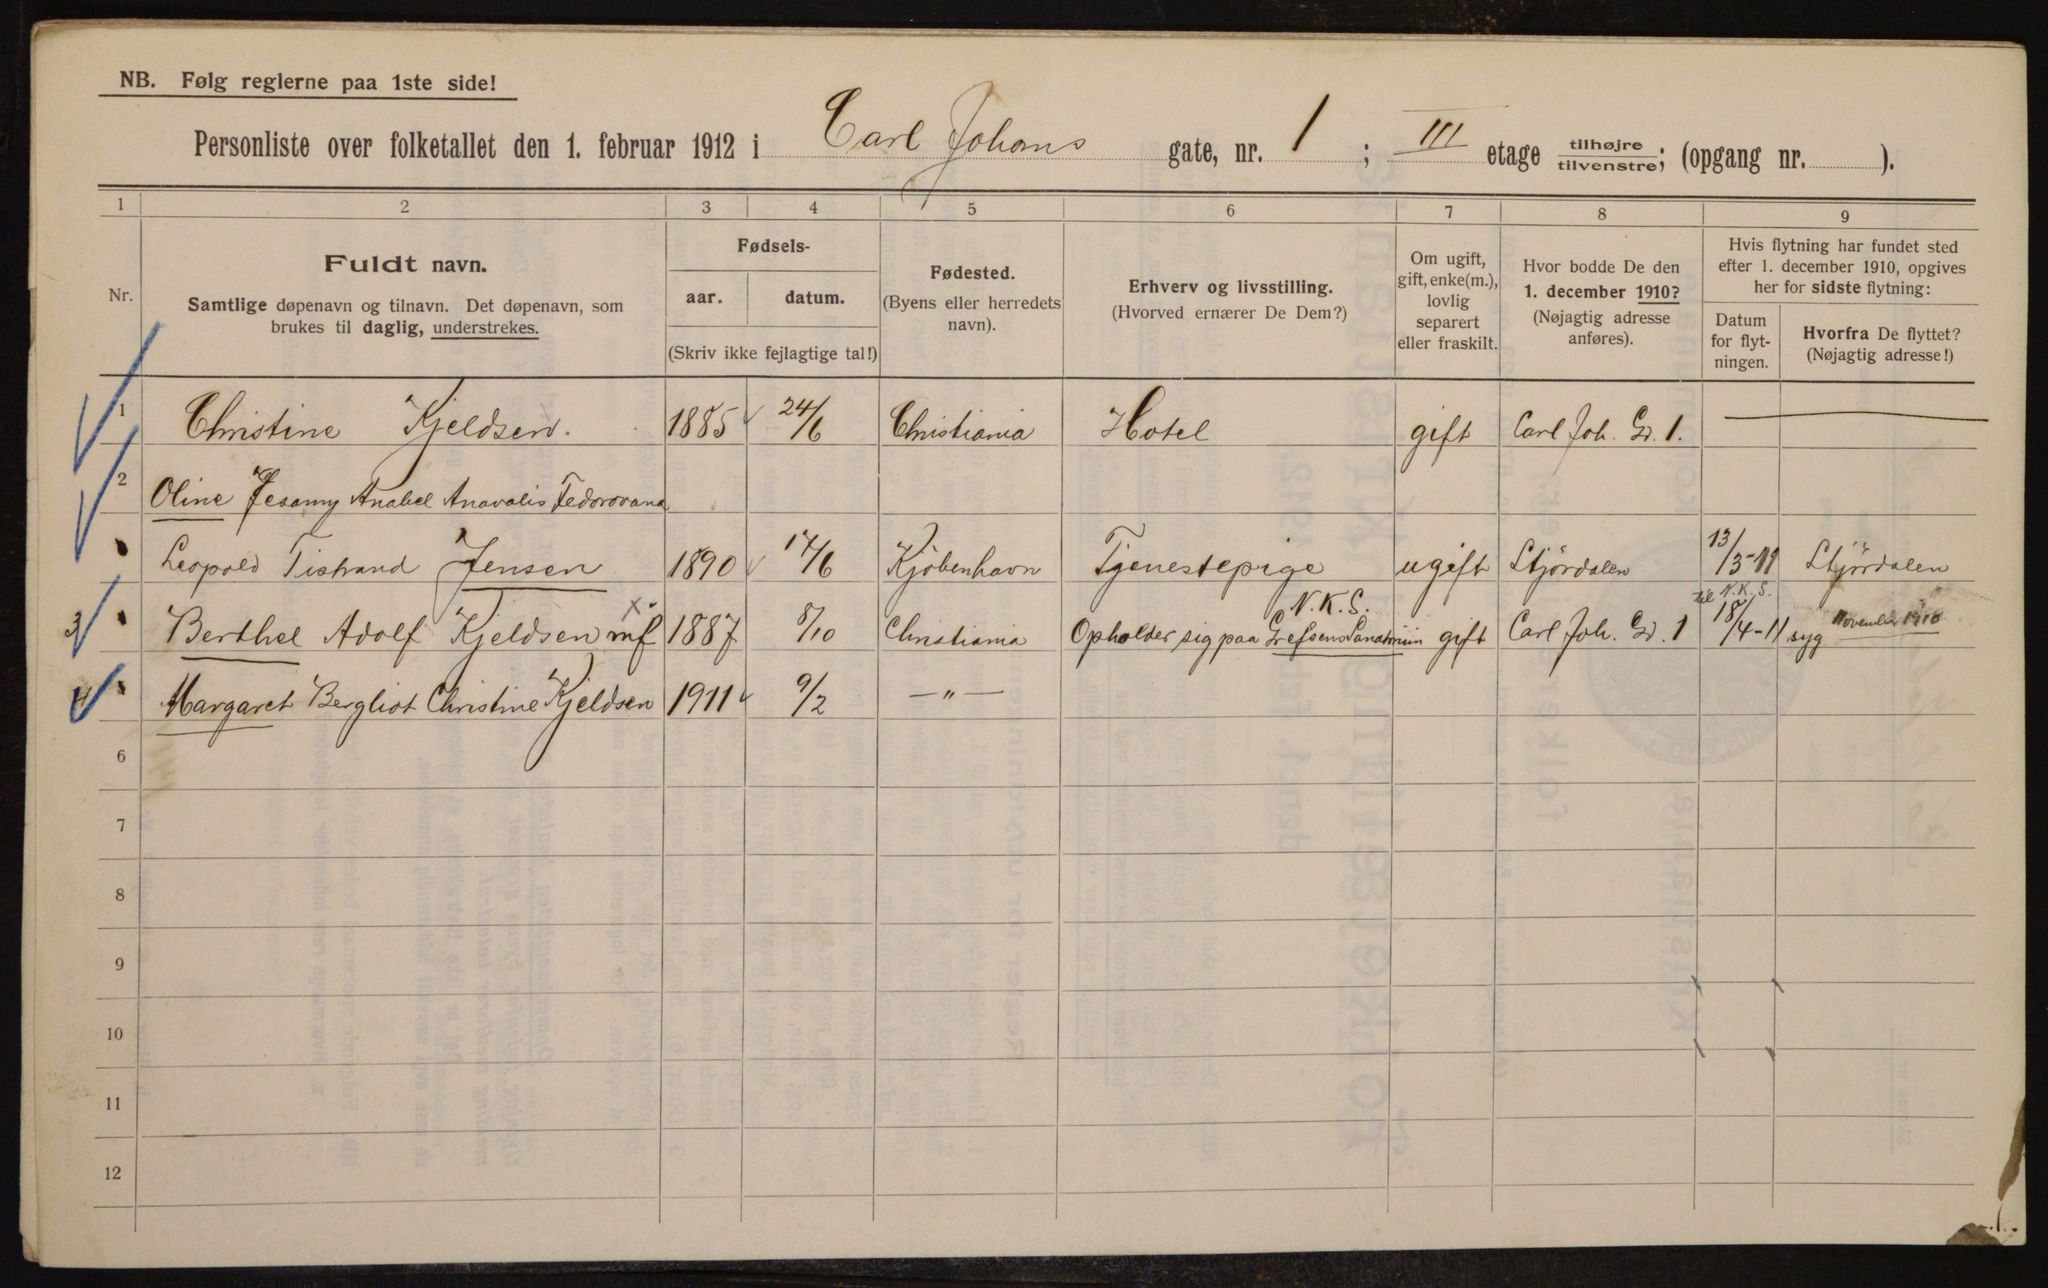 NB. Følg reglerne paa 1ste side!
Personliste over folketallet den 1. februar 1912 i Carl Johans gate, nr. 1 ; III etage tilhøjre/tilvenstre; (opgang nr. ).
1 2 3 4 5 6 7 8 9
Nr.
Fuldt navn.
Samtlige døpenavn og tilnavn. Det døpenavn, som
brukes til daglig, understrekes.
Fødsels-
aar. datum.
(Skriv ikke fejlagtige tal!)
Fødested.
(Byens eller herredets
navn).
Erhverv og livsstilling.
(Hvorved ernærer De Dem?)
Om ugift,
gift, enke(m.),
lovlig
separert
eller fraskilt.
Hvor bodde De den
1. december 1910?
(Nøjagtig adresse
anføres).
Hvis flytning har fundet sted
efter 1. december 1910, opgives
her for sidste flytning:
Datum
for flyt-
ningen.
Hvorfra De flyttet?
(Nøjagtig adresse!)
1 Christine Kjeldsen. 1885 24/6 Christiania Hotel gift Carl Joh. Gd. 1.
2 Oline Jesamy Anabel Anavalis Fedorovana
Leopold Tistrand Jensen 1890 17/6 Kjöbenhavn Tjenestepige ugift Stjördalen 13/3-11 Stjördalen
N.K.S. til N.K.S.
3 Berthel Adolf Kjeldsen mf 1887 8/10 Christiania Opholder sig paa Grefsens Sanatorium gift Carl Joh. Gd. 1 18/4-11 syg November 1910
4 Margaret Bergliot Christine Kjeldsen 1911 9/2 —"—
6
7
8
9
10
11
12